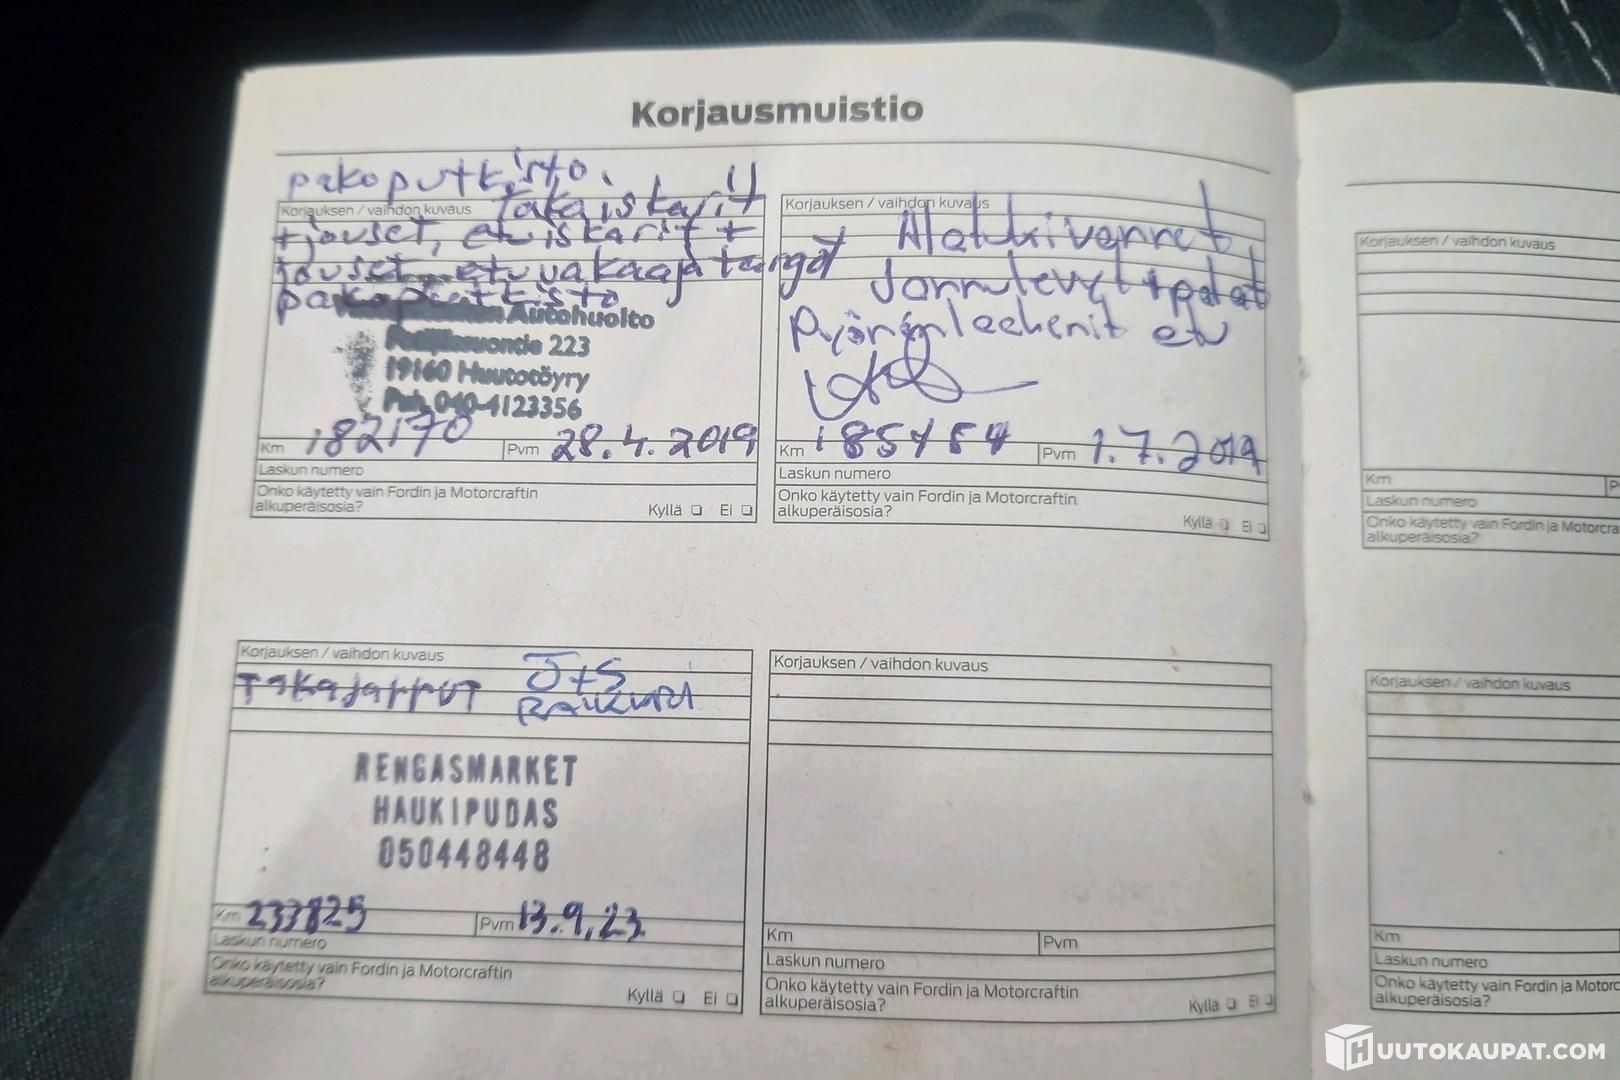 Korjausmuistio
pakoputkisto.
Korjauksen / vaihdon kuvaus Takaiskarit
+jouset, etuiskarit +
jouset, etuvakaajatangot
pakoputkisto
Autohuolto
223
19160 Huutotöyry
Puh. 040-4123356
Km 182170 Pvm 28.4.2019
Laskun numero
Onko käytetty vain Fordin ja Motorcraftin
alkuperäisosia? Kyllä Ei
Korjauksen / vaihdon kuvaus
Alatukivarret,
Jarrulevyt + palat
Pyöränlaakerit etu
Km 185454 Pvm 1.7.2019
Laskun numero
Onko käytetty vain Fordin ja Motorcraftin
alkuperäisosia? Kyllä Ei
Korjauksen / vaihdon kuvaus
Takajarrut J+S
Rengasmarket
HAUKIPUDAS
050448448
Km 233825 Pvm 13.9.23
Laskun numero
Onko käytetty vain Fordin ja Motorcraftin
alkuperäisosia? Kyllä Ei
Korjauksen / vaihdon kuvaus
Km Pvm
Laskun numero
Onko käytetty vain Fordin ja Motorcraftin
alkuperäisosia? Kyllä Ei
Korjauksen / vaihdon kuvaus
Km
Laskun numero
Onko käytetty vain Fordin ja Motorcra
alkuperäisosia?
Korjauksen / vaihdon kuvaus
Km
Laskun numero
Onko käytetty vain Fordin ja Motorc
alkuperäisosia?
HUUTOKAUPAT.COM